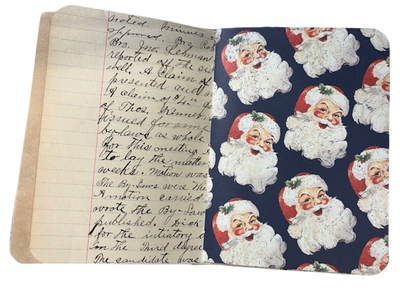 noted. Minutes
approved. Bro.
Bro. Jno. Lehman
reported off the sic
well. A claim
presented and
of claim of
of Thos. Skenner
issued for same
by-laws as whole
for this meeting
to lay the matter
weeks. Motion was
The By-Laws were th
A motion carried
wrote the By-Law
published. Dick
for the intiatory
in the Third degree
The candidate was